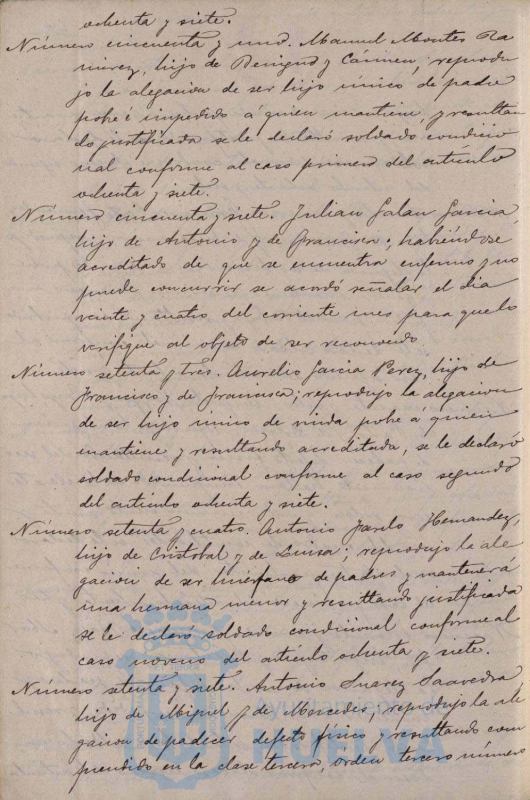 ochenta y siete.
Número cincuenta y uno. Manuel Montes Ra
mirez, hijo de Benigno y Cármen; reprodu
jo la alegacion de ser hijo único de padre
pobre é impedido á quien mantiene, y resultan
do justificada se le declaró soldado condicio
nal conforme al caso primero del artículo
ochenta y siete.
Número cincuenta y siete. Julian Galan Garcia,
hijo de Antonio y de Francisca; habiéndose
acreditado de que se encuentra enfermo y no
puede concurrir se acordó señalar el dia
veinte y cuatro del corriente mes para que lo
verifique al objeto de ser reconocido.
Número setenta y tres. Aurelio Garcia Perez, hijo de
Francisco y de Francisca; reprodujo la alegacion
de ser hijo único de viuda pobre á quien
mantiene y resultando acreditada, se le declaró
soldado condicional conforme al caso segundo
del artículo ochenta y siete.
Número setenta y cuatro. Antonio Hernandez,
hijo de Cristobal y de Luisa; reprodujo la ale
gacion de ser huerfano de padres y mantener á
una hermana menor y resultando justificada
se le declaró soldado condicional conforme al
caso noveno del artículo ochenta y siete.
Número setenta y siete. Antonio Suarez Saavedra,
hijo de Miguel y de Mercedes; reprodujo la ale
gacion de padecer defecto físico y resultando com
prendido en la clase tercera, orden tercero número
Ayuntamiento de
HUELVA